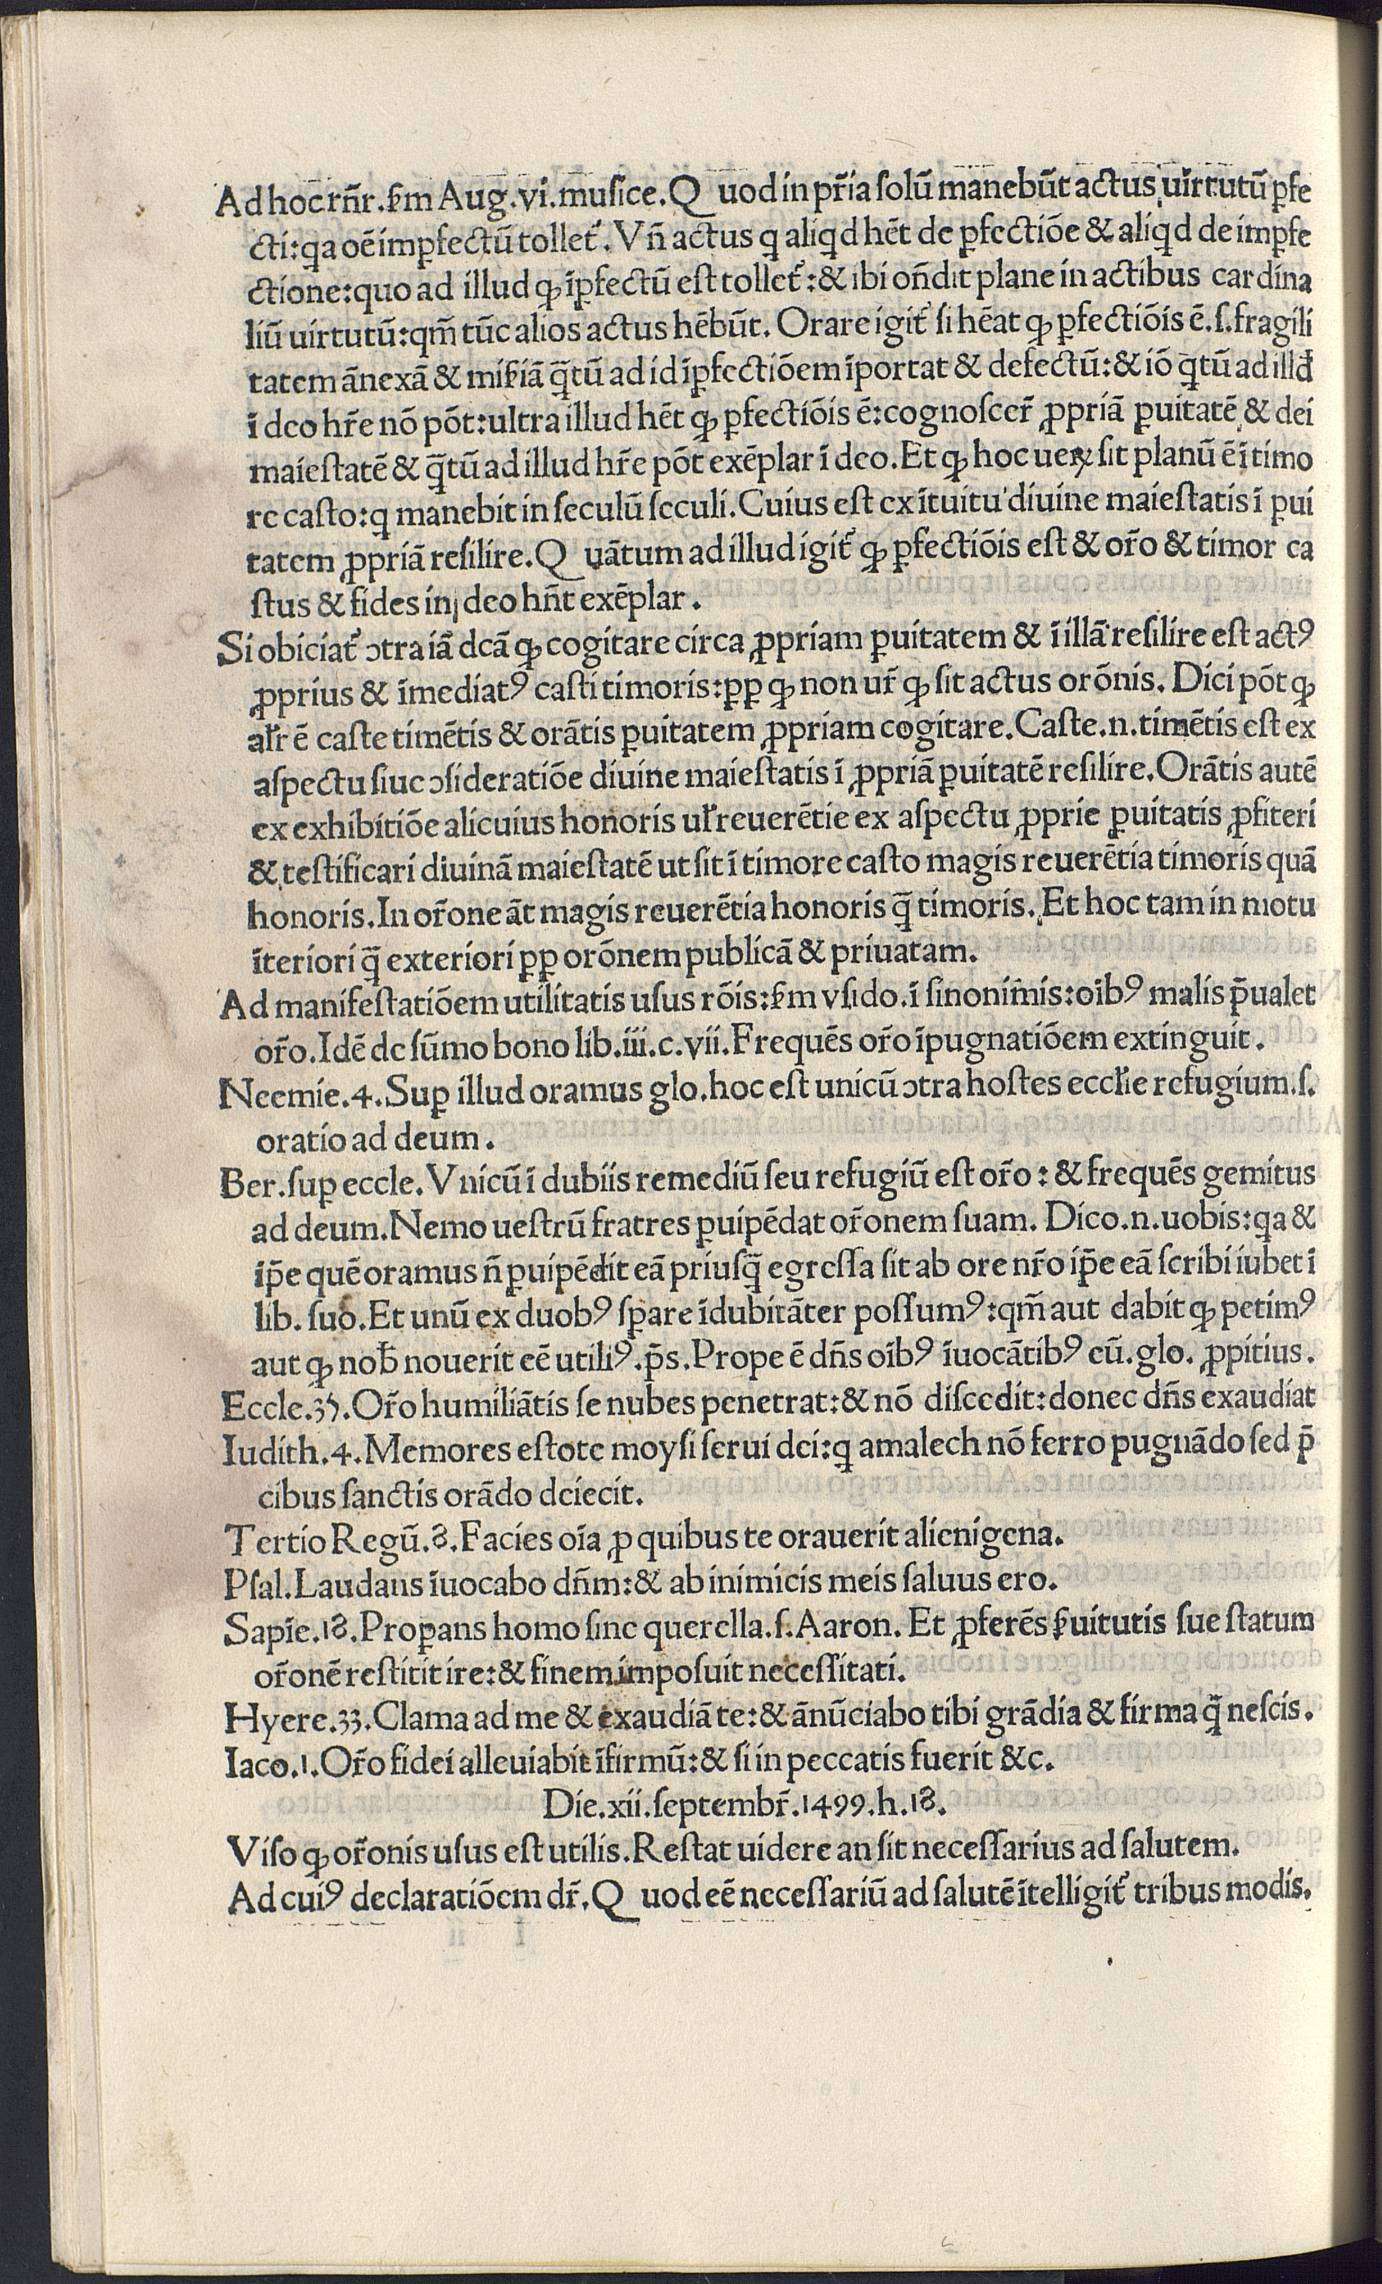 Ad hoc rn̄r. ẜm Aug. vi. musice. Q uod in pr̄ia solū manebūt actus uirtutū ꝑfe
cti: qa oē imꝑfectū tolletᷣ. Vn̄ actus q aliqd hēt de ꝑfectiōe & aliqd de imꝑfe
ctione: quo ad illud ꝙ īꝑfectū est tolletᷣ: & ibi on̄dit plane in actibus cardina
liū uirtutū: qm̄ tūc alios actus hēbūt. Orare igitᷣ si hēat ꝙ ꝑfectiōis ē. s. fragili
tatem ānexā & miẜiā q̄tū ad id īꝑfectiōem īportat & defectū: & iō q̄tū ad illđ
ī deo hr̄e nō pōt: ultra illud hēt ꝙ ꝑfectiōis ē: cognoscer̄ ꝓpriā ꝑuitatē & dei
maiestatē & q̄tū ad illud hr̄e pōt exēplar ī deo. Et ꝙ hoc ueꝝ sit planū ē ī timo
re casto: q manebit in seculū seculi. Cuius est ex ītuitu diuine maiestatis ī ꝑui
tatem ꝓpriā resilire. Q uātum ad illud igitᷣ ꝙ ꝑfectiōis est & or̄o & timor ca
stus & fides in deo hn̄t exēplar.
Si obiciatᷣ ↄtra iā dcā ꝙ cogitare circa ꝓpriam ꝑuitatem & ī illā resilire est actꝰ
ꝓprius & īmediatꝰ casti timoris: ꝑꝑ ꝙ non ur̄ ꝙ sit actus orōnis. Dici pōt ꝙ
alr̄ ē caste timētis & orātis ꝑuitatem ꝓpriam cogitare. Caste. n. timētis est ex
aspectu siue ↄsideratiōe diuine maiestatis ī ꝓpriā ꝑuitatē resilire. Orātis autē
ex exhibitiōe alicuius honoris ul̄ reuerētie ex aspectu ꝓprie ꝑuitatis ꝓfiteri
& testificari diuinā maiestatē ut sit ī timore casto magis reuerētia timoris quā
honoris. In or̄one āt magis reuerētia honoris q̄ timoris. Et hoc tam in motu
īteriori q̄ exteriori ꝑꝑ orōnem publicā & priuatam.
Ad manifestatiōem utilitatis usus rōis: ẜm ysido. ī sinonimis: oībꝰ malis p̄ualet
or̄o. Idē de sūmo bono lib. iii. c. vii. Frequēs or̄o īpugnatiōem extinguit.
Neemie. 4. Suꝑ illud oramus glo. hoc est unicū ↄtra hostes eccl̄ie refugium. s.
oratio ad deum.
Ber. suꝑ eccle. Vnicū ī dubiis remediū seu refugiū est or̄o: & frequēs gemitus
ad deum. Nemo uestrū fratres ꝑuipēdat or̄onem suam. Dico. n. uobis: qa &
ip̄e quē oramus n̄ ꝑuipēdit eā priusq̄ egressa sit ab ore nr̄o ip̄e eā scribi iubet ī
lib. suo. Et unū ex duobꝰ sꝑare īdubitāter possumꝰ: qm̄ aut dabit ꝙ petimꝰ
aut ꝙ nob̄ nouerit eē utiliꝰ. p̄s. Prope ē dn̄s oībꝰ īuocātibꝰ eū. glo. ꝓpitius.
Eccle. 35. Or̄o humiliātis se nubes penetrat: & nō discedit: donec dn̄s exaudiat
Iudith. 4. Memores estote moysi serui dei: q amalech nō ferro pugnādo sed p̄
cibus sanctis orādo deiecit.
Tertio Regū. 8. Facies oīa ꝓ quibus te orauerit alienigena.
Psal. Laudans īuocabo dn̄m: & ab inimicis meis saluus ero.
Sapīe. 18. Proꝑans homo sine querella. s. Aaron. Et ꝓferēs ẜuitutis sue statum
or̄onē restitit ire: & finem imposuit necessitati.
Hyere. 33. Clama ad me & exaudiā te: & ānūciabo tibi grādia & firma q̄ nescis.
Iaco. 1. Or̄o fidei alleuiabit īfirmū: & si in peccatis fuerit &c.
Die. xii. septembr̄. 1499. h. 18.
Viso ꝙ or̄onis usus est utilis. Restat uidere an sit necessarius ad salutem.
Ad cuiꝰ declaratiōem dr̄. Q uod eē necessariū ad salutē ītelligitᷣ tribus modis.